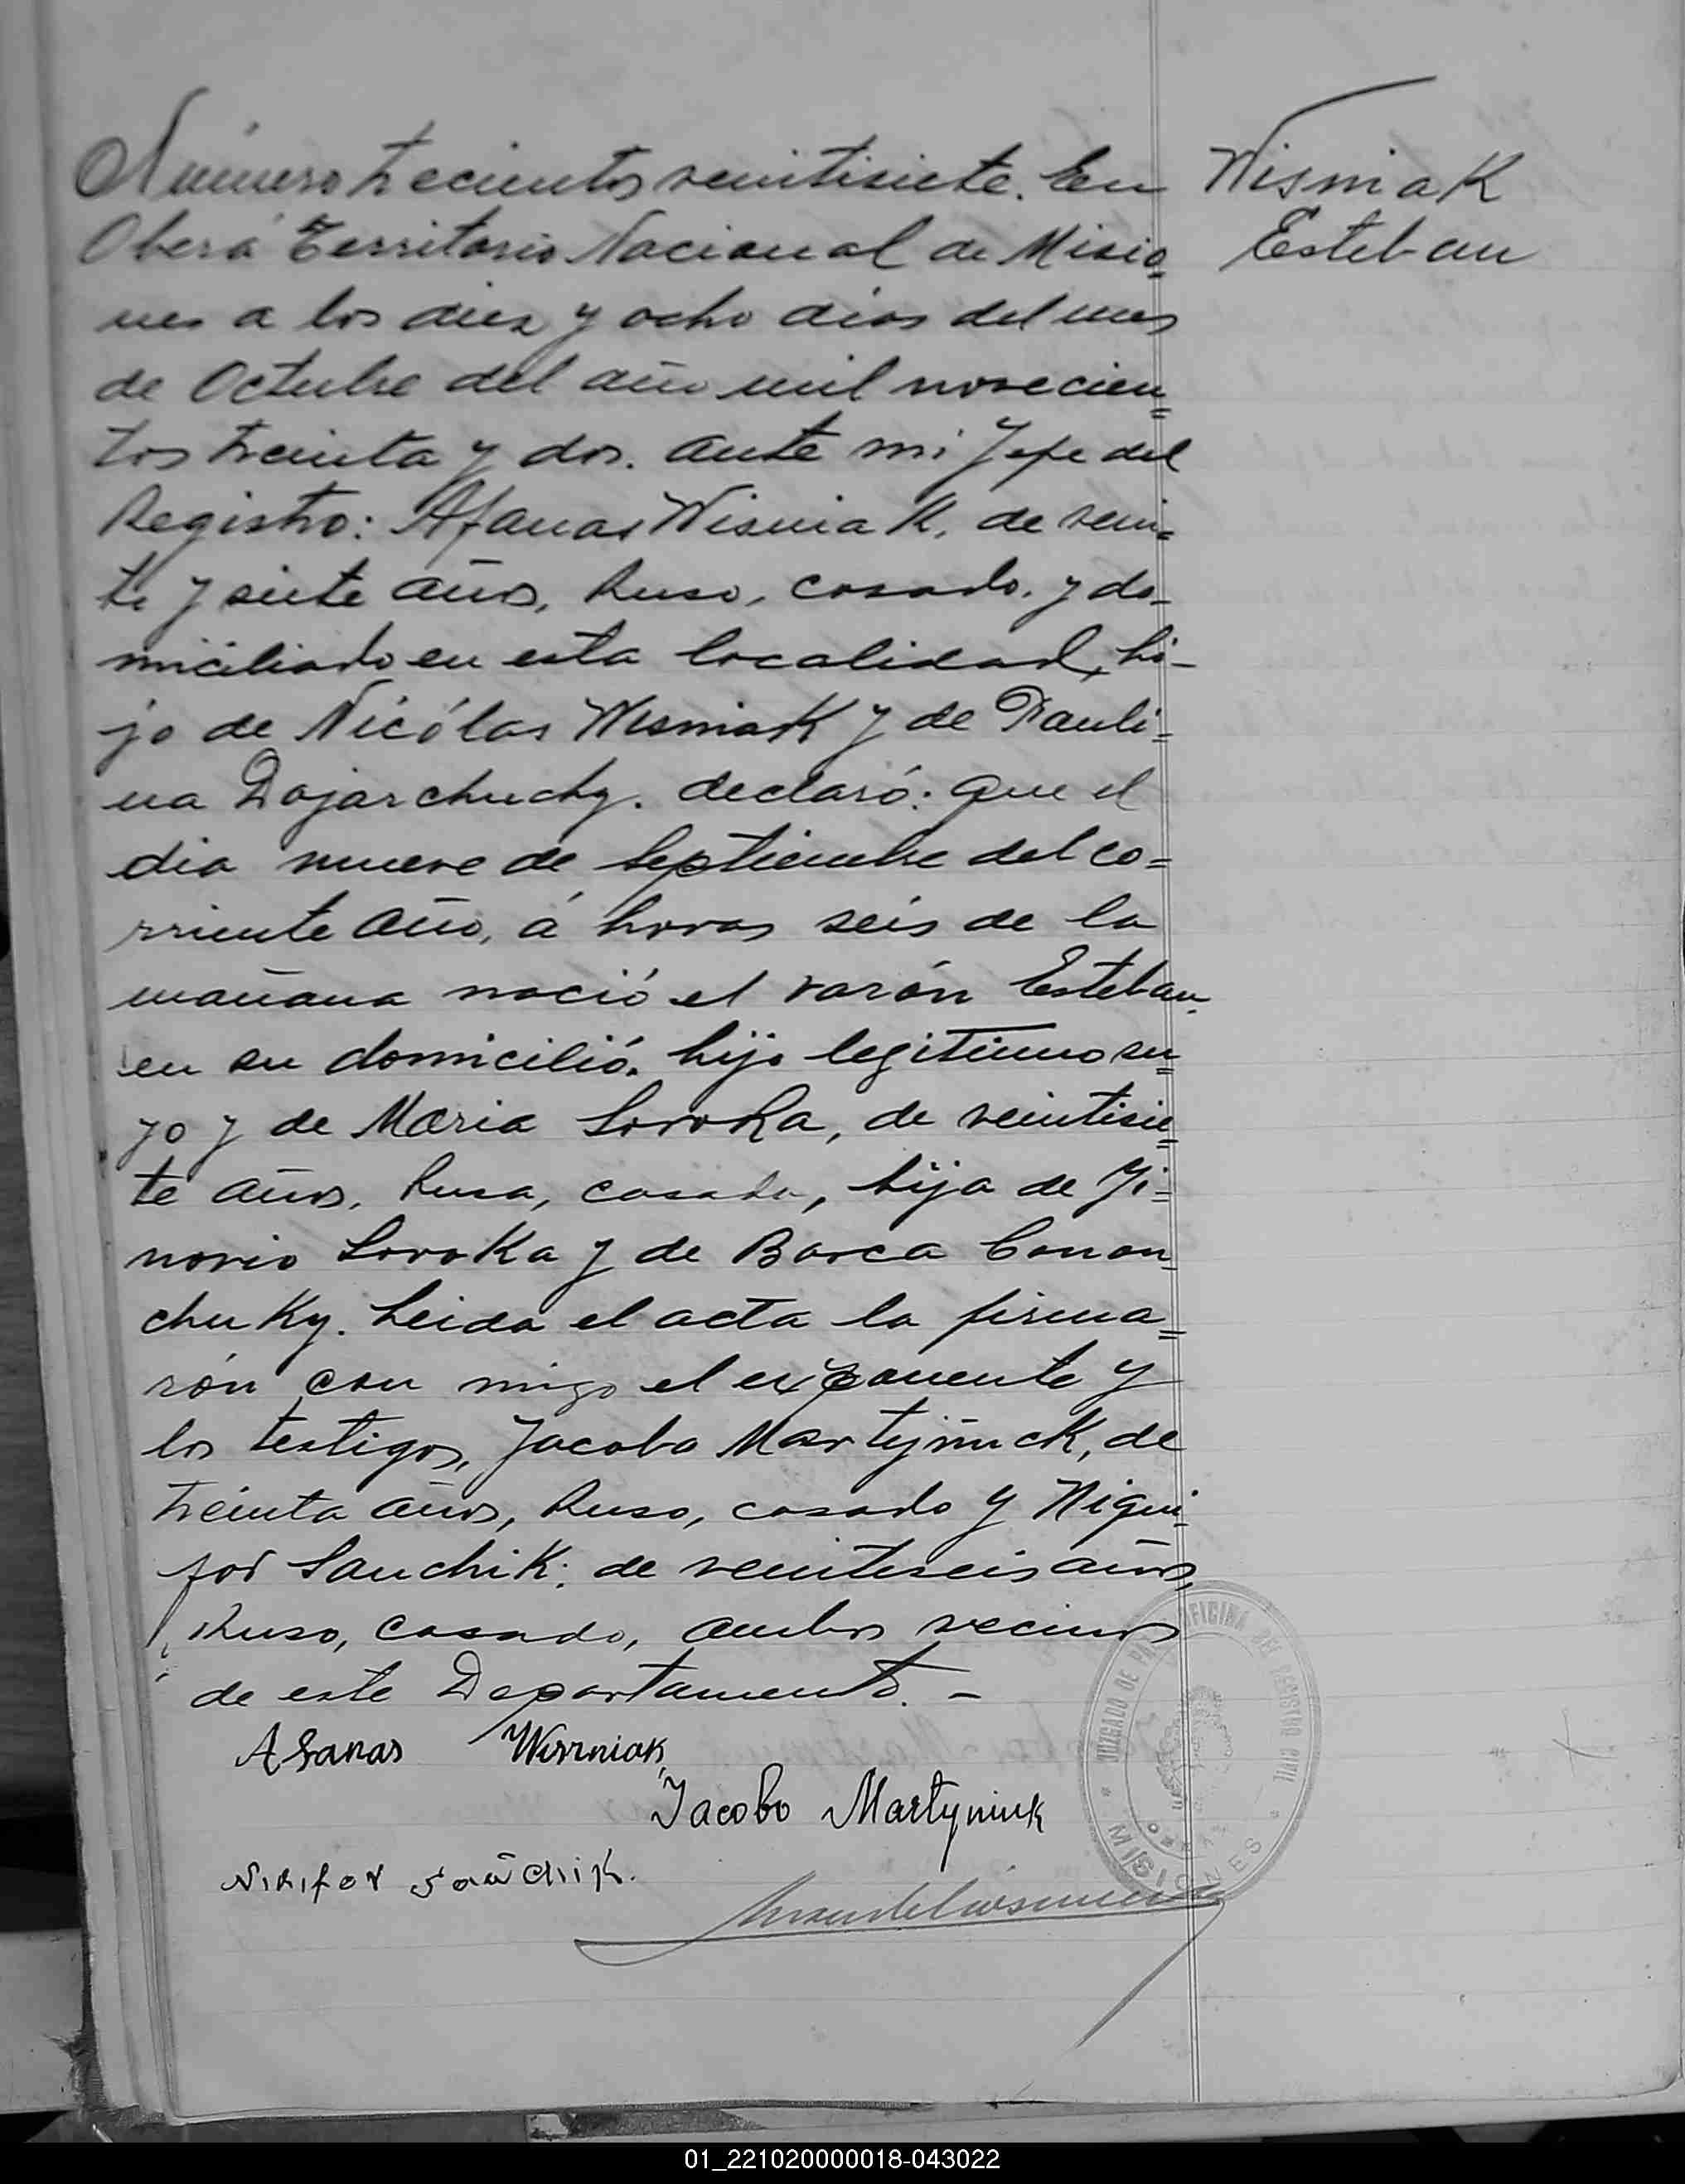 Número trecientos veintisiete. En
Oberá Territorio Nacional de Misio=
nes a los diez y ocho dias del mes
de Octubre del año mil novecien=
tos treinta y dos. ante mi Jefe del
Registro: Afanas Wisniak, de vein=
te y siete años, Ruso, casado, y do-
miciliado en esta localidad, hi-
jo de Nicólas Wisniak y de Pauli=
na Dojarchuchy. declaró: que el
dia nueve de Septiembre del co=
rriente año, á horas seis de la
mañana nació el varón Esteban
en su domicilió. hijo legitimo su=
yo y de Maria Soroka, de veintisie=
te años, Rusa, casada, hija de Ji=
norio Soroka y de Barca Conon=
chuky. Leida el acta la firma=
rón con migo el exponente y
los testigos, Jacobo Martyniuck, de
treinta años, Ruso, casado y Niqui=
for Sauchik; de veintiseis años,
Ruso, casado, ambos vecinos
de este Departamento. -
Wisniak
Esteban
Afanas Wisniak
Jacobo Martyniuk
Nikifor Sauchik.
JUZGADO DE PAZ OFICINA DEL REGISTRO CIVIL
MISIONES
01_221020000018-043022